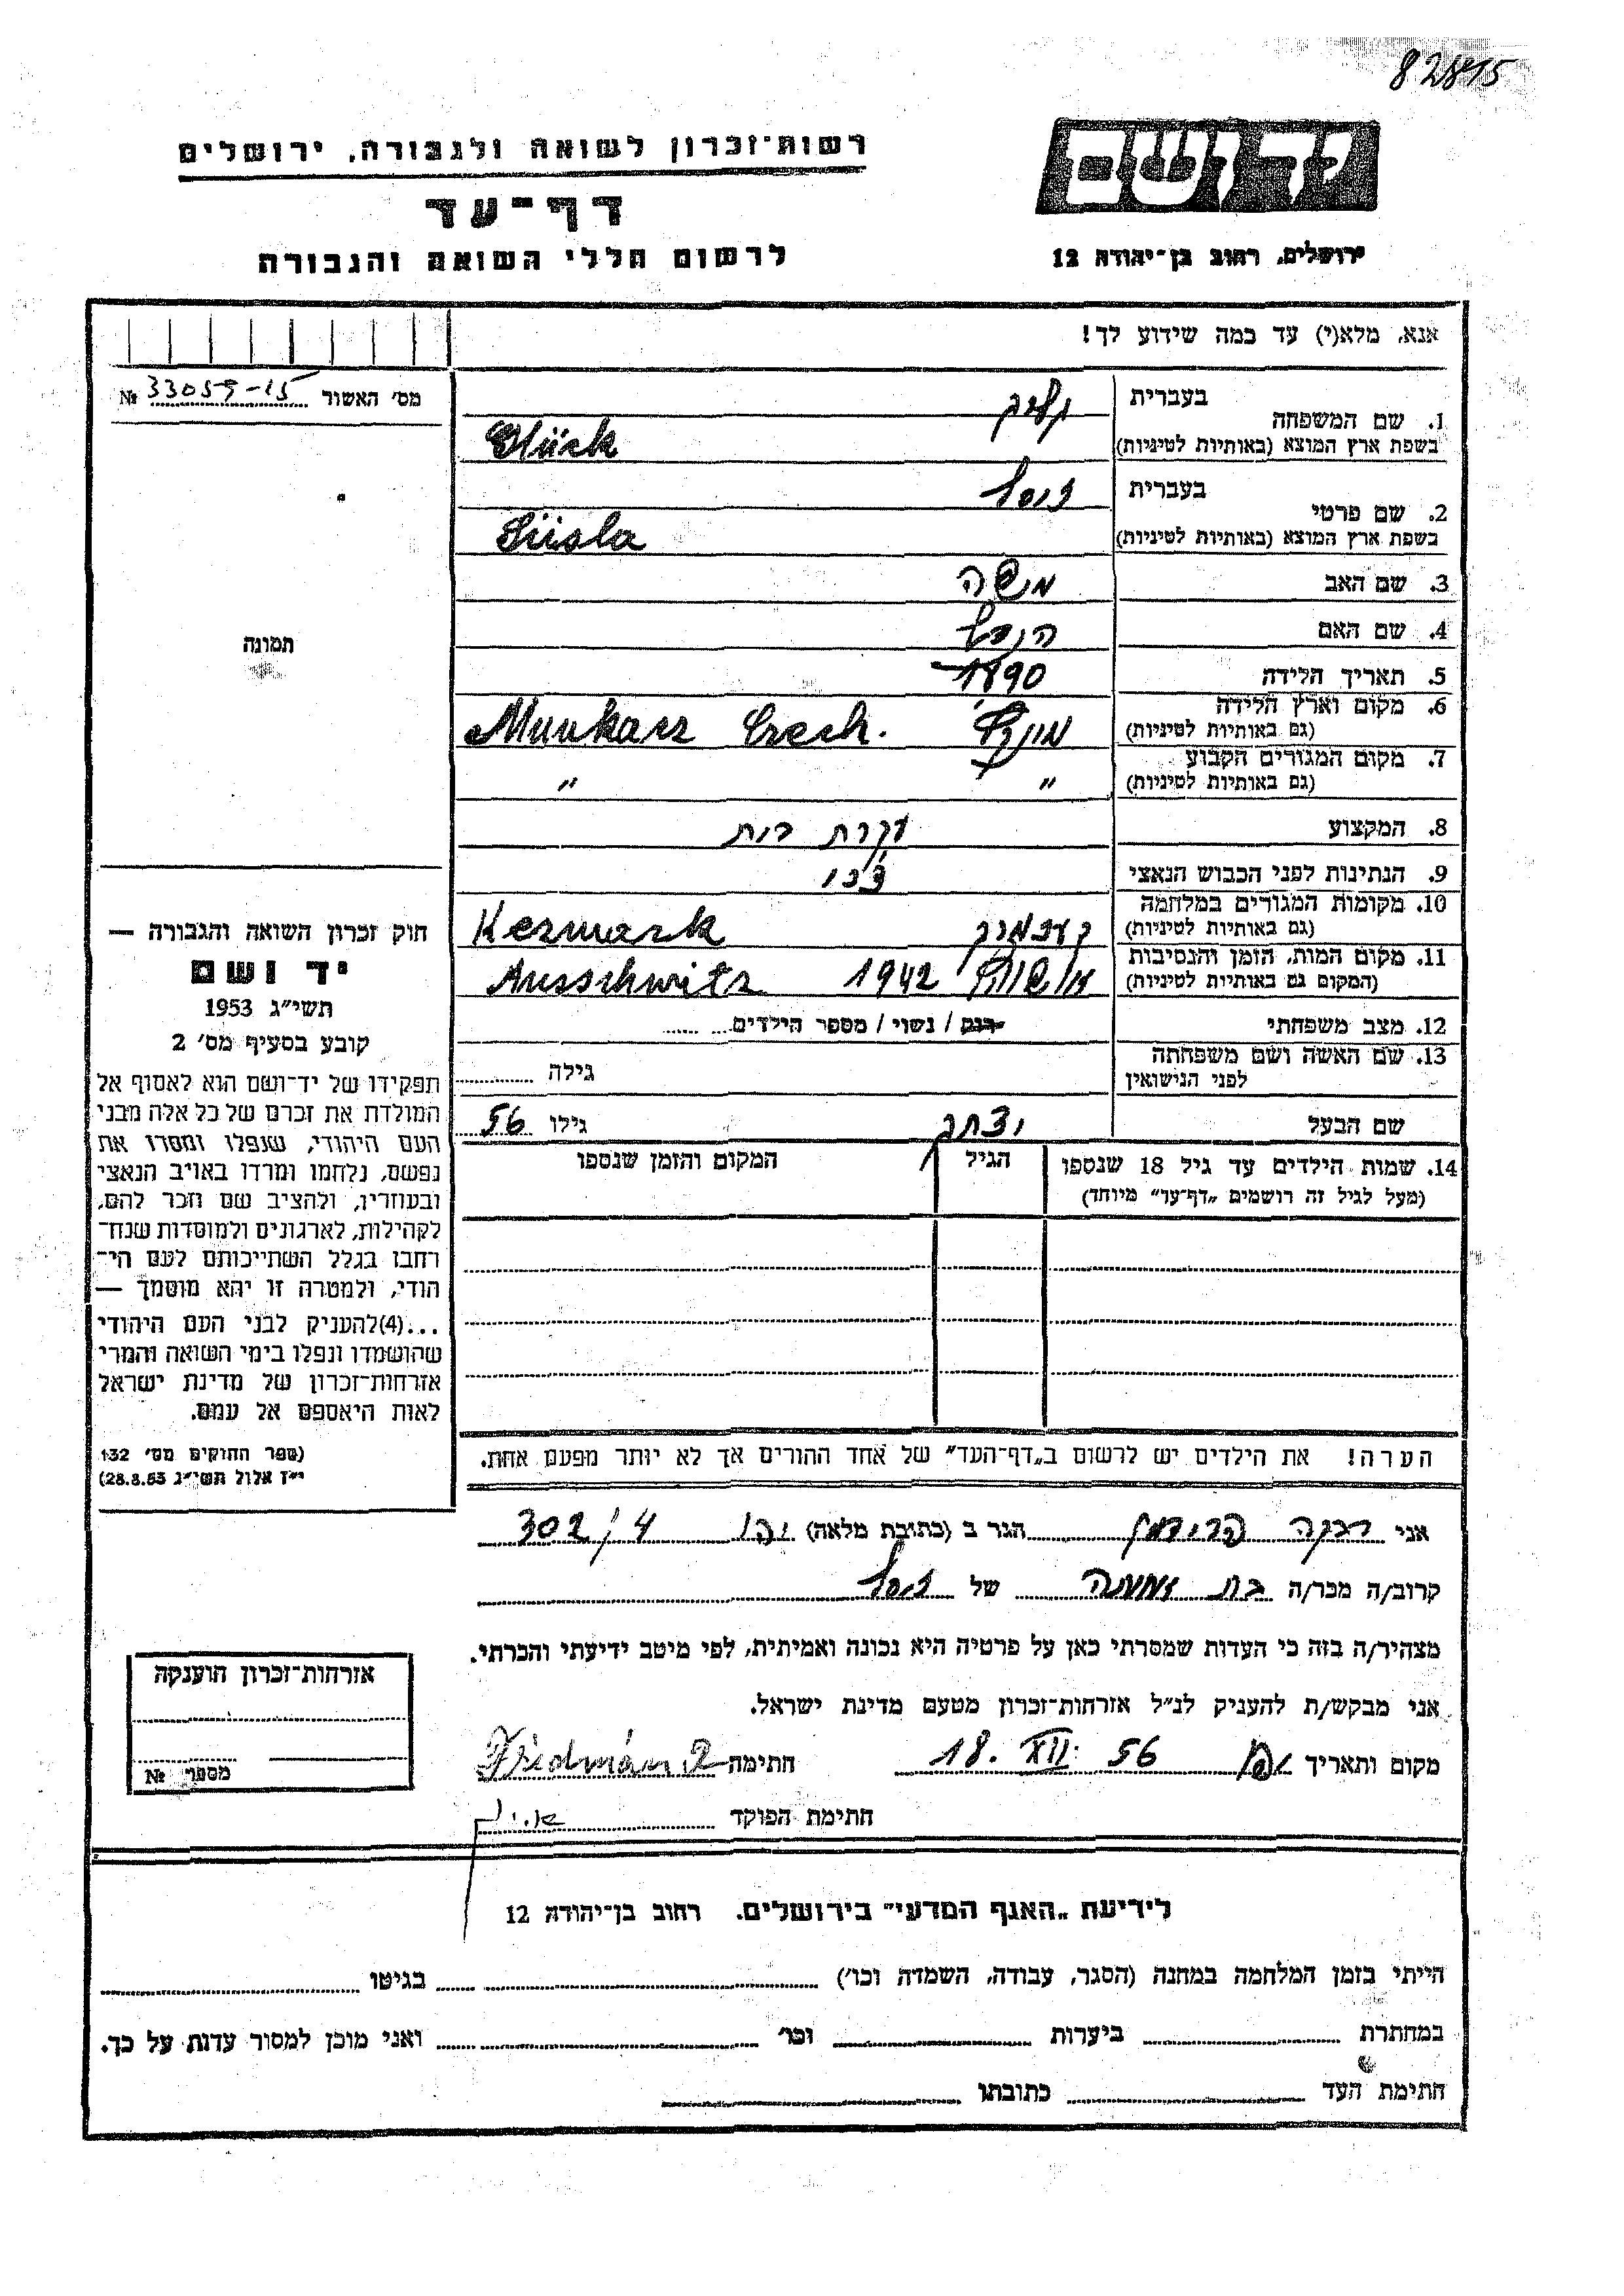 82845
יד ושם
ירושלים, רחוב בן־יהודה 12
רשות־זכרון לשואה ולגבורה, ירושלים
דף־עד
לרשום חללי השואה והגבורה
אנא, מלא(י) עד כמה שידוע לך!
מס' האשור 33059-15 №
תמונה
1. שם המשפחה
בעברית גליק
בשפת ארץ המוצא (באותיות לטיניות) Glück
2. שם פרטי
בעברית זיסל
בשפת ארץ המוצא (באותיות לטיניות) Süsla
3. שם האב משה
4. שם האם
5. תאריך הלידה 1890
6. מקום וארץ הלידה
(גם באותיות לטיניות) Munkacz Czech.
7. מקום המגורים הקבוע
(גם באותיות לטיניות) " "
8. המקצוע עקרת בית
9. הנתינות לפני הכבוש הנאצי צ'כו
10. מקומות המגורים במלחמה
(גם באותיות לטיניות) קעזמרק Kezmark
11. מקום המות, הזמן והנסיבות
(המקום גם באותיות לטיניות) אושוויץ 1942 Ausschwitz
12. מצב משפחתי רווק / נשוי / מספר הילדים
13. שם האשה ושם משפחתה
לפני הנישואין גילה
שם הבעל יצחק גילו 56
14. שמות הילדים עד גיל 18 שנספו הגיל המקום והזמן שנספו
(מעל לגיל זה רושמים „דף־עד" מיוחד)
הערה! את הילדים יש לרשום ב„דף־העד" של אחד ההורים אך לא יותר מפעם אחת.
חוק זכרון השואה והגבורה —
יד ושם
תשי"ג 1953
קובע בסעיף מס' 2
תפקידו של יד־ושם הוא לאסוף אל
המולדת את זכרם של כל אלה מבני
העם היהודי, שנפלו ומסרו את
נפשם, נלחמו ומרדו באויב הנאצי
ובעוזריו, ולהציב שם וזכר להם,
לקהילות, לארגונים ולמוסדות שנח־
רבו בגלל השתייכותם לעם הי־
הודי, ולמטרה זו יהא מוסמך —
...(4) להעניק לבני העם היהודי
שהושמדו ונפלו בימי השואה והמרי
אזרחות־זכרון של מדינת ישראל
לאות היאספם אל עמם.
(ספר החוקים מס' 132
י"ז אלול תשי"ג 28.8.53)
אני רבקה פרידמן הגר ב (כתובת מלאה) יפו 302/4
קרוב/ה מכר/ה בת של זיסל
מצהיר/ה בזה כי העדות שמסרתי כאן על פרטיה היא נכונה ואמיתית, לפי מיטב ידיעתי והכרתי.
אני מבקש/ת להעניק לנ"ל אזרחות־זכרון מטעם מדינת ישראל.
מקום ותאריך יפו 18. XII. 56 חתימה Friedmán R
חתימת הפוקד
אזרחות־זכרון הוענקה
מספר №
לידיעת „האגף המדעי" בירושלים, רחוב בן־יהודה 12
הייתי בזמן המלחמה במחנה (הסגר, עבודה, השמדה וכו') בגיטו
במחתרת ביערות וכו' ואני מוכן למסור עדות על כך.
חתימת העד כתובתו